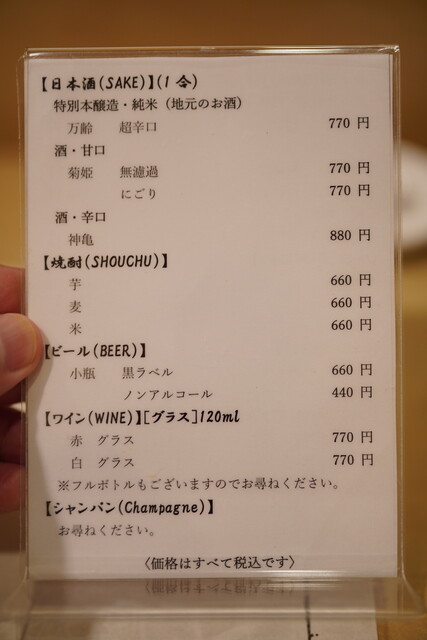 【日本酒(SAKE)】(1合)
特別本醸造・純米（地元のお酒）
万齢　超辛口　770 円
酒・甘口
菊姫　無濾過　770 円
にごり　770 円
酒・辛口
神亀　880 円
【焼酎(SHOUCHU)】
芋　660 円
麦　660 円
米　660 円
【ビール(BEER)】
小瓶　黒ラベル　660 円
ノンアルコール　440 円
【ワイン(WINE)】[グラス]120ml
赤　グラス　770 円
白　グラス　770 円
※フルボトルもございますのでお尋ねください。
【シャンパン(Champagne)】
お尋ねください。
〈価格はすべて税込です〉